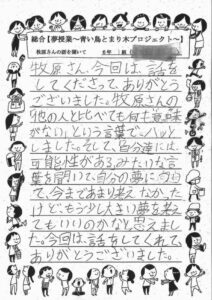 総合【夢授業～青い鳥とまり木プロジェクト～】
牧原さんの話を聞いて　６年　組
牧原さん、今回は、話を
してくださって、ありがとう
ございました。牧原さんの
他の人と比べても何も意味
がない」という言葉で、ハッと
しました。そして、自分達には、
可能性がある。みたいな言
葉を聞いて、自分の夢に向
て、今まであまり考えなかった
けど、もう少し大きい夢を考え
てもいいのかなと思えまし
た。今回は、話をしてくれて、
ありがとうございました。